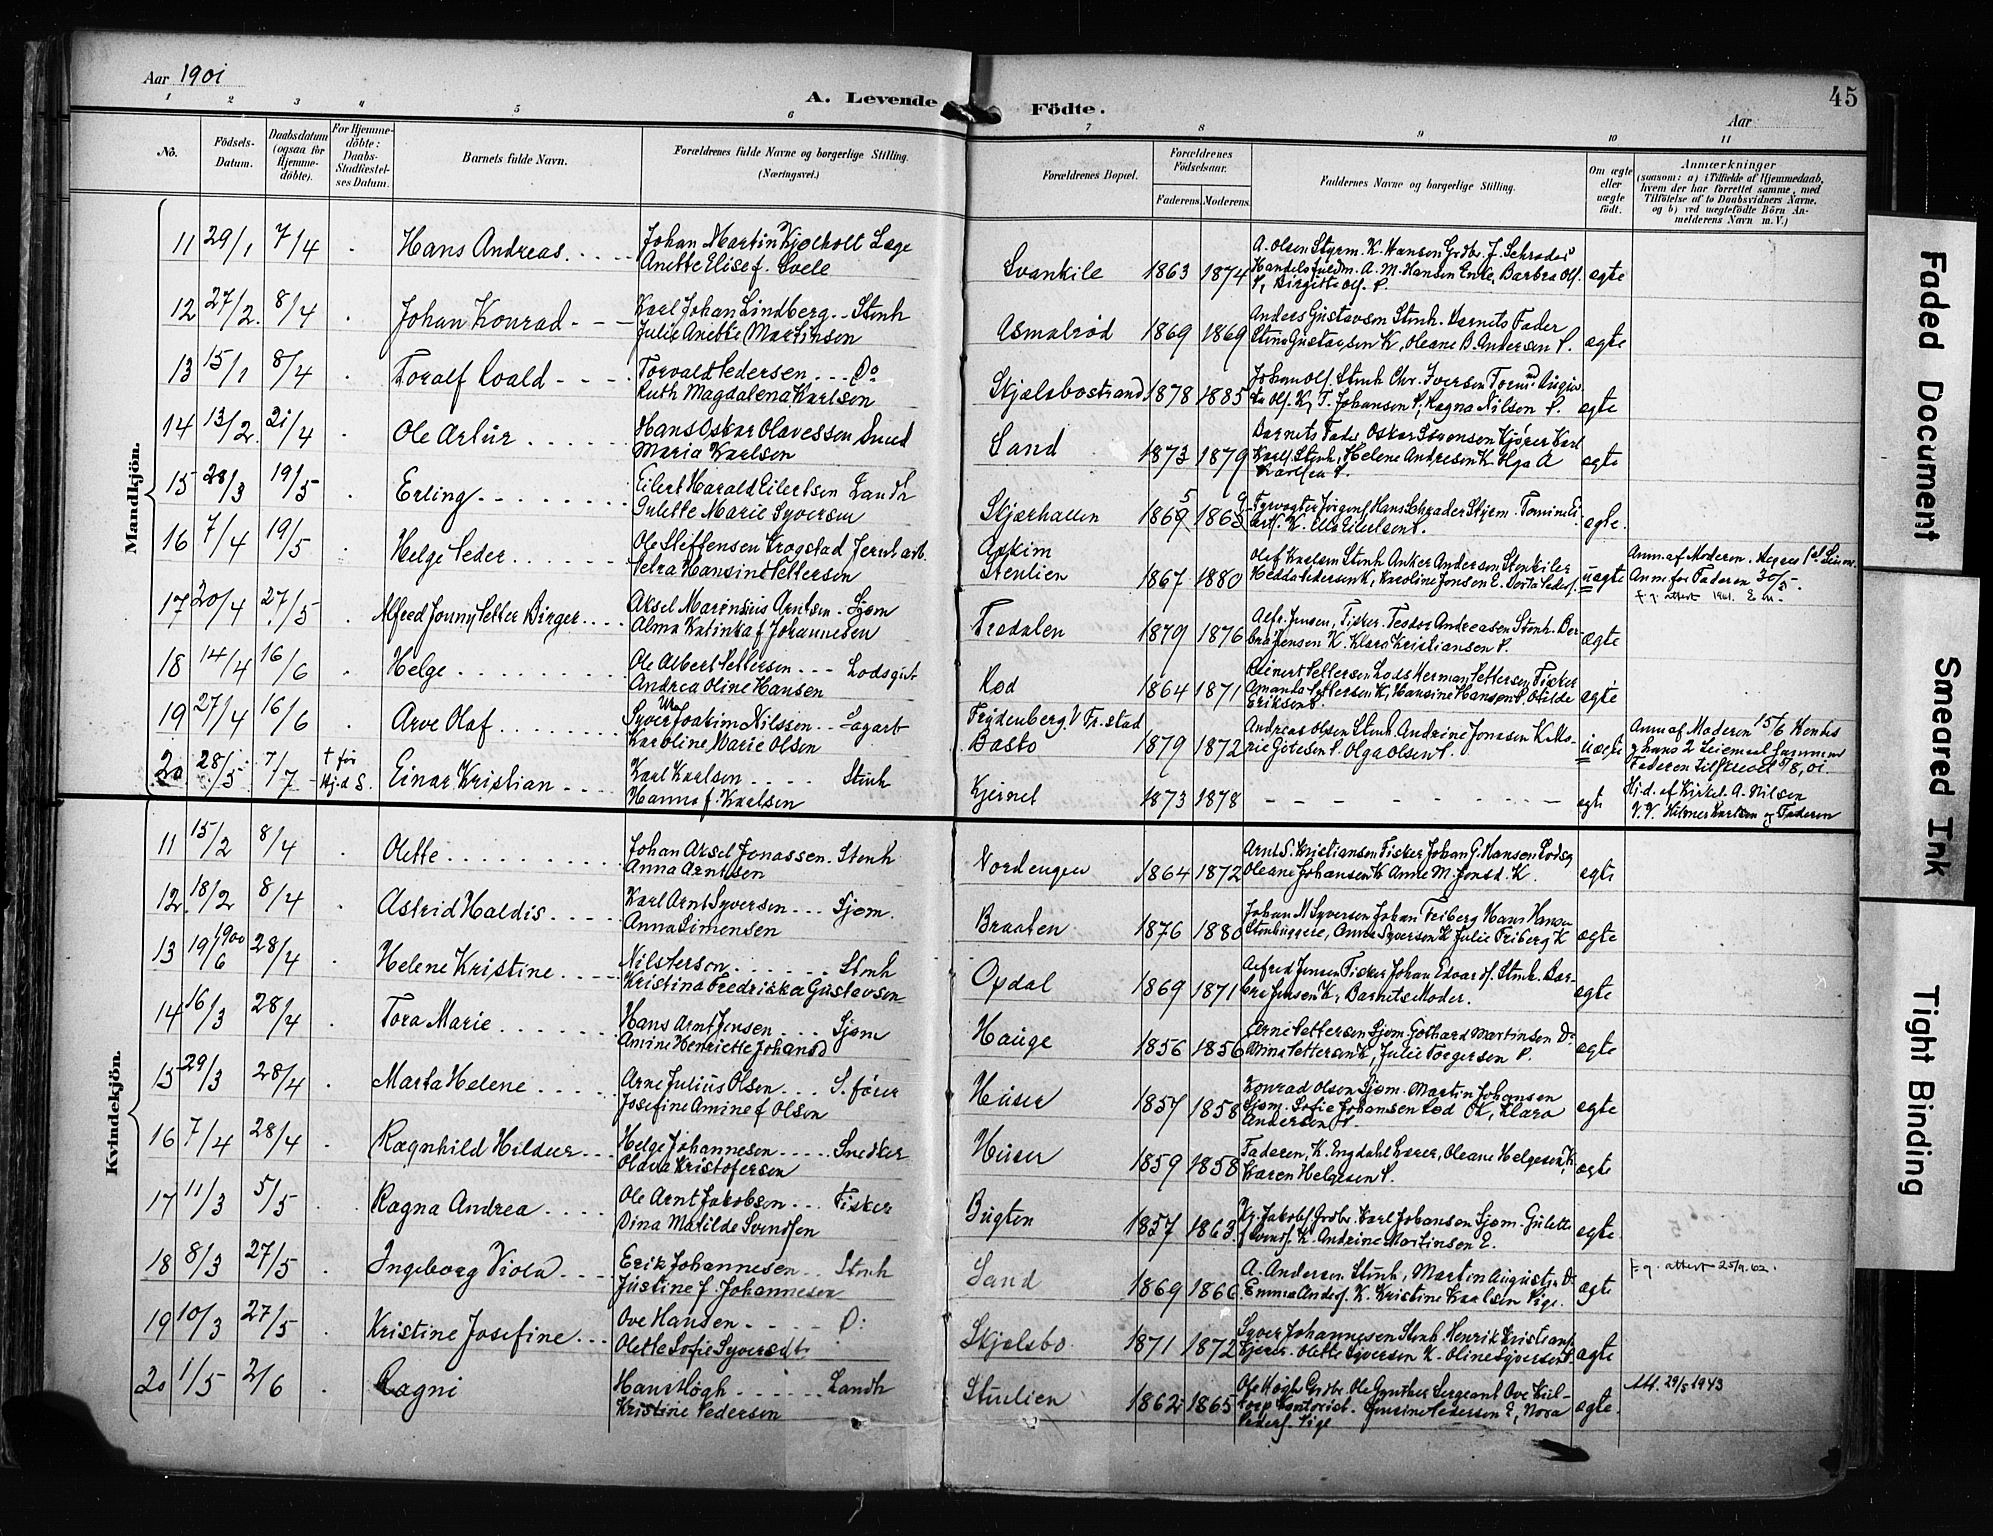 Aar 1901
A. Levende Födte.
45
Aar
1 2 3 4 5 6 7 8 9 10 11
No.
Födsels-Datum.
Daabsdatum (ogsaa for Hjemme-döbte).
For Hjemme-döbte: Daabs-Stadfæstel-ses Datum.
Barnets fulde Navn.
Forældrenes fulde Navne og borgerlige Stilling. (Næringsvei.)
Forældrenes Bopæl.
Forældrenes Födselsaar.
Faderens. Moderens.
Faddernes Navne og borgerlige Stilling.
Om ægte eller uægte födt.
Anmærkninger
(saasom: a) i Tilfælde af Hjemmedaab, hvem der har forrettet samme, med Tilföielse af to Daabsvidners Navne. og b) ved uægtefödte Börn Anmelderens Navn m. V.)
Mandkjön.
11 29/1 7/4 Hans Andreas. Johan Martin Kjølholt Læge
Anette Elise f. Svele Svankile 1863 1874 A. Olsen Styrm. K. Hansen Grdbr. J. Schrøder
Handelsfuldm. A. M. Hansen Enke, Barbra Olf. P, Birgitte Olf. P. ægte
12 27/2. 8/4 Johan Konrad Karl Johan Lindberg Stenh
Julie Anette Martinsen Asmalrød 1869 1869 Anders Gustavsen Stenh. Barnets Fader
Stina Gustavsen K, Oleane B. Andersen P. ægte
13 15/1 8/4 Toralf Roald Torvald Pedersen Do
Ruth Magdalena Karlsen Skjælsbostrand 1878 1885 Johan Olf. Stenh Chr. Iversen
Olf. K, T. Johansen P, Ragna Nilsen P. ægte
14 13/2. 21/4 Ole Artur Hans Oskar Olavessen Smed
Maria Karlsen Sand 1873 1879 Barnets Fader, Oskar Sørensen Kjører Karl
Karlf. Stenh, Helene Andresen K. Olga A
Karlsen P. ægte
15 28/3 19/5 Erling Eilert Harald Eilertsen Landh
Gulette Marie Syversen Skjærhallen 1869 5 1863 9 Fyrvogter Jørgens, Hans Schrøder Skjem. Tomine
K. Ella Eilertsen P. ægte.
16 7/4 19/5 Helge Peder Ole Steffensen Krogstad Jernb arb.
Petra Hansine Pettersen Askim
Stenlien 1867 1880 Olaf Karlsen Stenh Anker Andersen Stenkiler
Hedda Pedersen K, Karoline Jonsen E. Dorta Pedersf. uægte Anm. af Moderen. Begges 1st Leierm.
Anm. for Faderen 30/5.
f. g. attest 1941.
17 20/4 27/5 Alfred Jonny Petter Birger Aksel Marensius Arntsen Sjøm
Alma Katinka f Johannesen Trodalen 1879 1876 Alfr. Jensen, Fisker. Teodor Andreasen Stenh. Bar-
bra Jensen K. Klara Kristiansen P. ægte
18 14/4 16/6 Helge Ole Albert Pettersen Lodsgut
Andrea Oline Hansen Rød 1864 1871 Einert Pettersen Lods Herman Pettersen Fisker
Amanda Pettersen K, Hansine Hansen P, Otilde
Eriksen P. ægte
19 27/4 16/6 Arve Olaf Syver Joakim Nilssen Sagarb
Karoline Marie Olsen Frydenberg V. Fr.stad
Bastø 1879 1872 Andreas Olsen Stenh. Andrine Jonasen K. Ma-
rie Götesen P. Olga Olsen P. uægte Anm af Moderen 15/6 Hendes
og hans 2 Leiermaal sammen
Faderen tilskrevet 5/8,01
20 28/5 7/7 † før Hj.d S. Einar Kristian Karl Karlsen Stenh
Hanna f. Karlsen Kjernet 1873 1878 ægte Hj.d. af Kirkel. A. Nilsen
V. V. Hilmer Karlsen og Faderen
Kvindekjön.
11 15/2 8/4 Olette Johan Aksel Jonassen Stenh
Anna Arntsen Nordengen 1864 1872 Arnt S. Kristiansen Fisker Johan G. Hansen Lodsg
Oleane Johansen K Anne M. Jonsd. K. ægte
12 18/2 8/4 Astrid Haldis Karl Arnt Syversen Sjøm.
Anna Simensen Braaten 1876 1880 Johan M Syversen Johan Friberg Hans Hansen
Stenhuggere, Anna Syversen K Julie Friberg K ægte
13 19/6 1900 28/4 Helene Kristine Nils Person Stenh
Kristina Fredrikka Gustavsen Opdal 1869 1871 Alfred Jensen Fisker Johan Edvardf. Stenh. Bar-
bra Jensen K, Barnets Moder. ægte
14 16/3 28/4 Tora Marie Hans Arnt Jensen Sjøm
Amine Henriette Johansd Hauge 1856 1856 Arne Pettersen Sjøm. Gothard Martinsen Do
Mina Pettersen K, Julie Torgersen P. ægte
15 29/3 28/4 Marta Helene Arne Julius Olsen S. fører
Josefine Amine f Olsen Huser 1857 1858 Konrad Olsen Sjøm. Martin Johansen
Sjøm. Sofie Johansen Lød K, Klara
Andersen P. ægte
16 7/4 28/4 Ragnhild Hildur Helge Johannesen Snedker
Olava Kristofersen Huser 1859 1858 Faderen, K. Engdahl Lærer, Oleane Helgesen K,
Karen Helgesen P. ægte
17 11/3 5/5 Ragna Andrea Ole Arnt Jakobsen Fisker
Dina Matilde Svendsen Bugten 1857 1863. Jakobf Grdbr. Karl Johansen Sjøm. Gulette
Svendf. K. Andrine Martinsen E. ægte
18 8/3 27/5 Ingeborg Viola Erik Johannesen Stenh
Justine f. Johannesen Sand 1869 1866 A. Andersen Stenh, Martin Augustsn Do
Emma Andersf. K. Kristine Karlsen Pige. ægte f. g. attest 25/9. 62.
19 10/3 27/5 Kristine Josefine Ove Hansen Do
Olette Sofie Syversdt Skjælsbo. 1871 1872 Syver Johannesen Stenh. Henrik Kristiansf
Kjører. Olette Syversen K. Oline Syversen P. ægte
20 1/5 2/6 Ragni Hans Høgh Landh
Kristine Pedersen Stenlien 1862 1865 Ole Høgh Grdbr. Ole Gunther Sergeant Ove Kul-
torp Kontorist. Jensine Pedersen E, Nora
Pedersf. Pige ægte. Att. 29/5 1943
Faded Document
Smeared Ink
Tight Binding